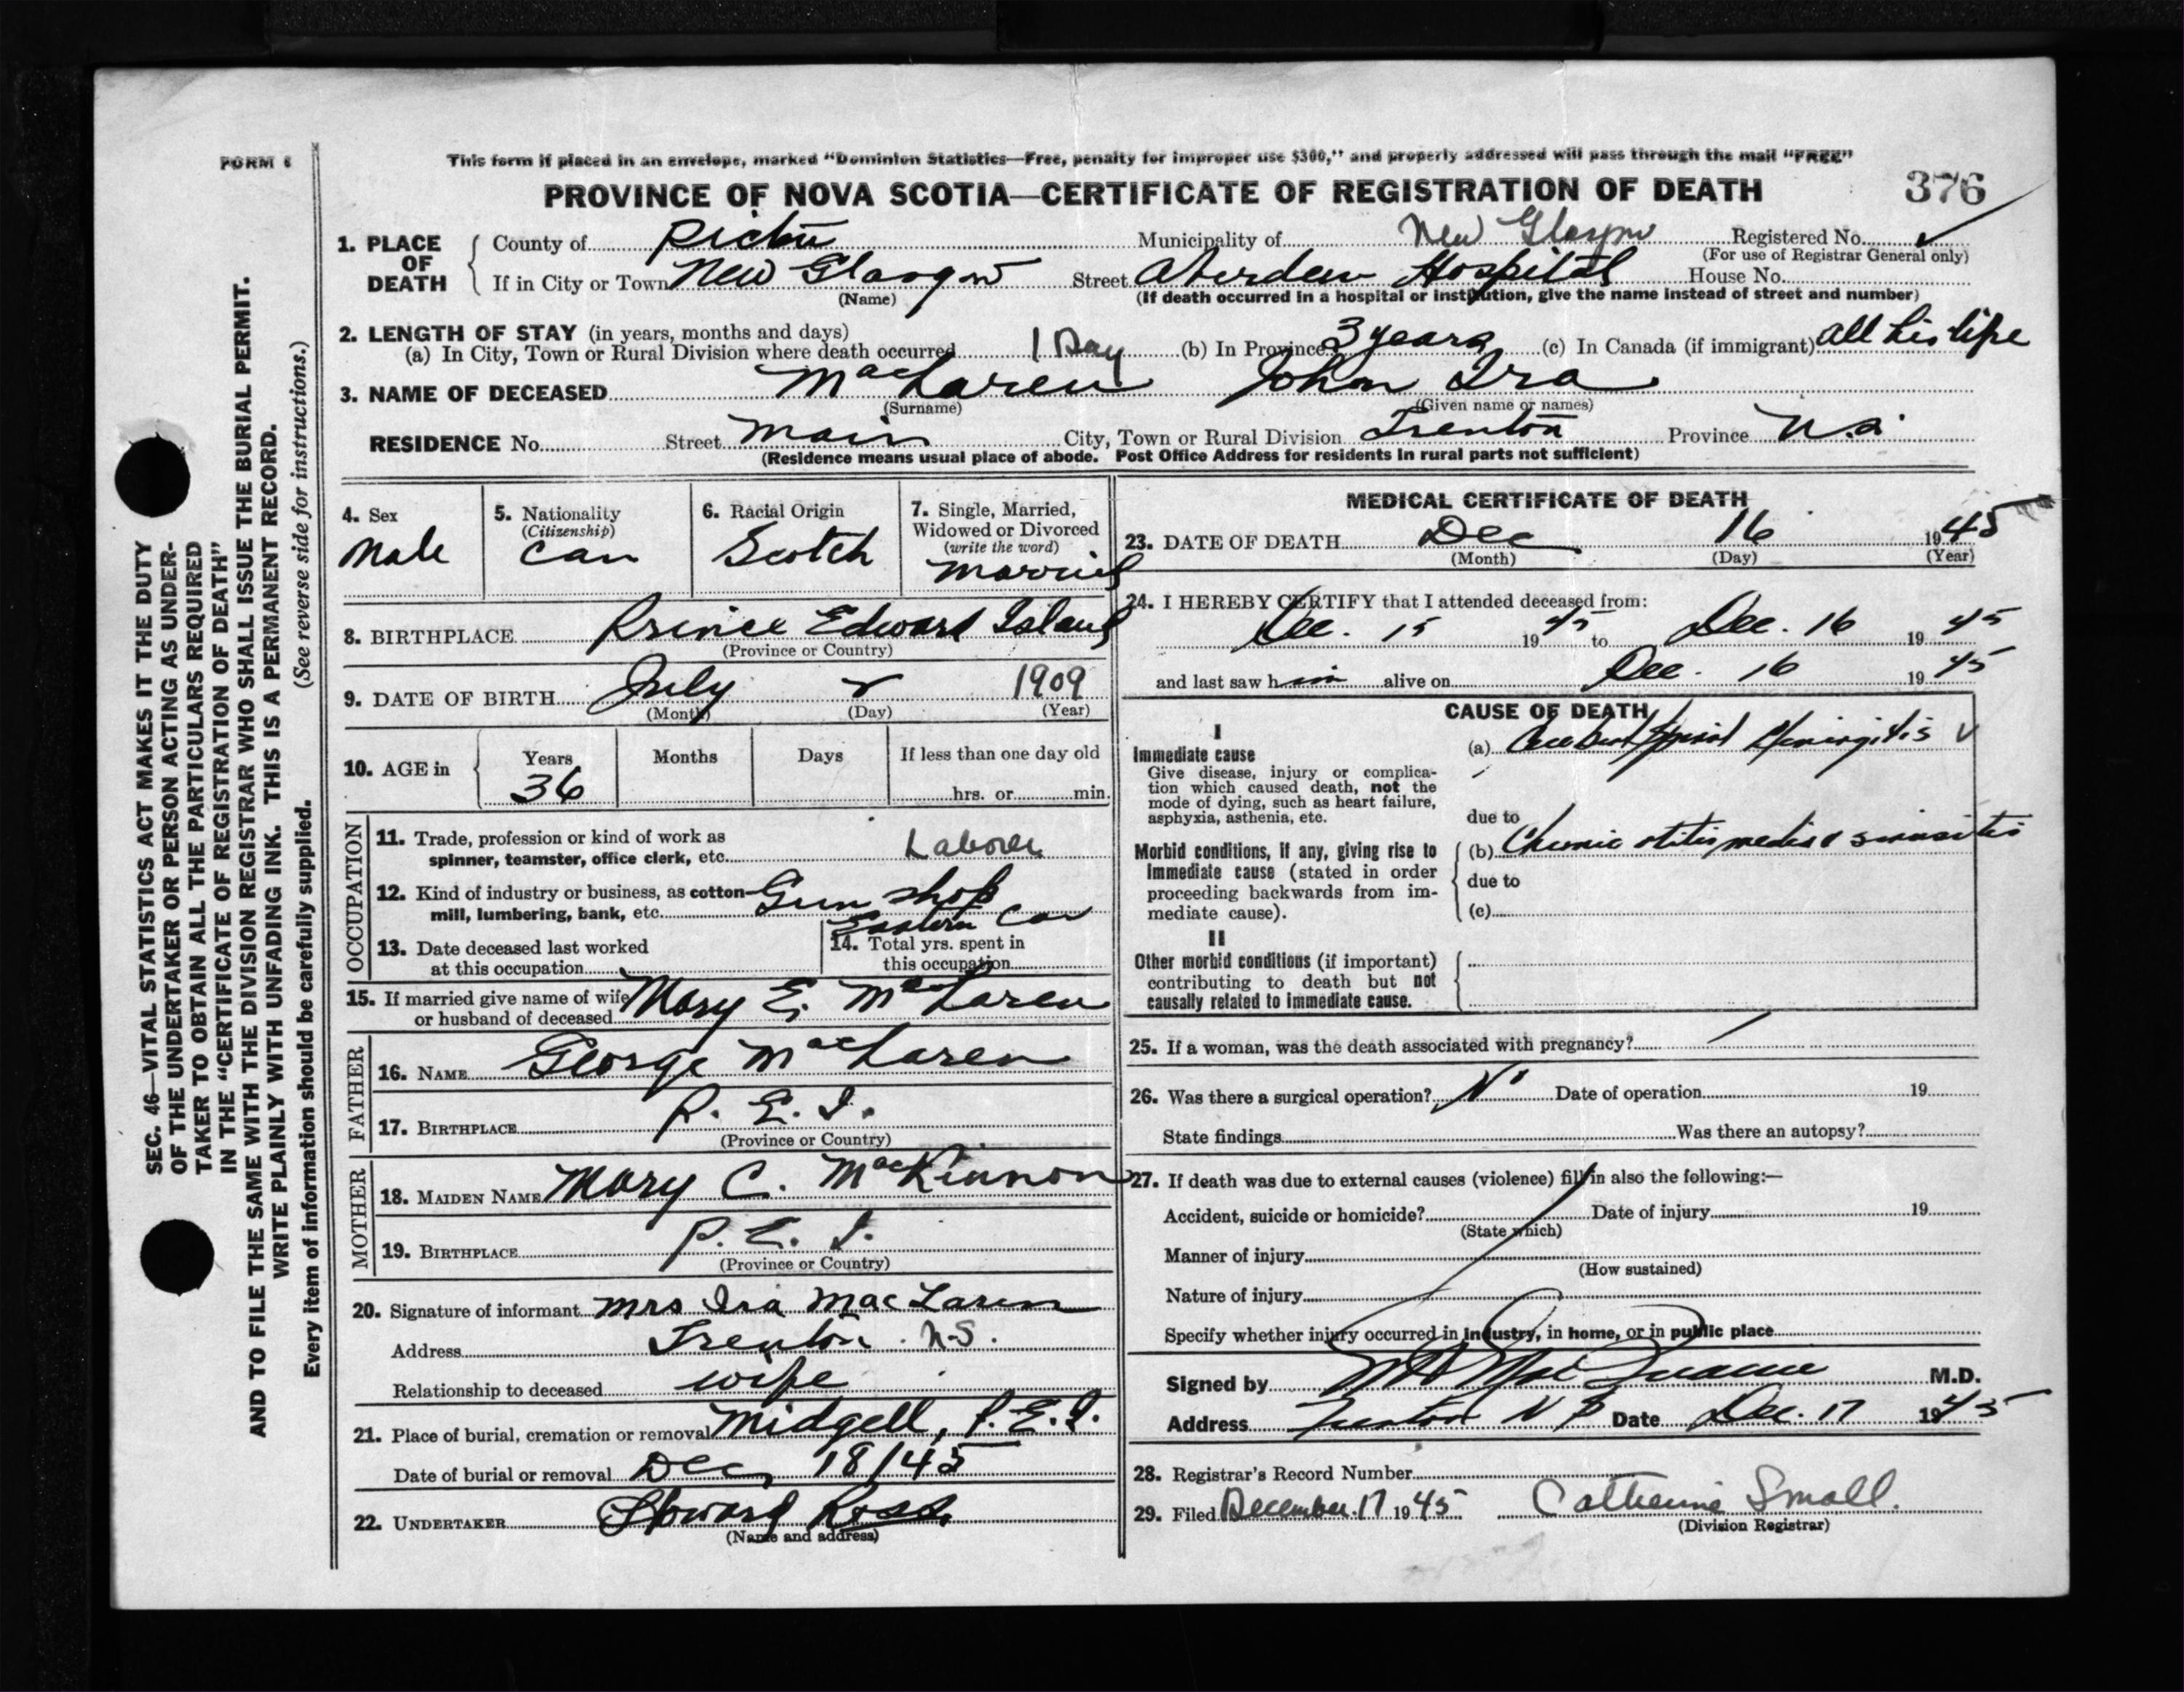 FORM 6
This form if placed in an envelope, marked "Dominion Statistics—Free, penalty for improper use $300," and properly addressed will pass through the mail "FREE"
PROVINCE OF NOVA SCOTIA—CERTIFICATE OF REGISTRATION OF DEATH 376
1. PLACE OF DEATH
County of Pictou Municipality of New Glasgow Registered No. ✓
(For use of Registrar General only)
If in City or Town New Glasgow Street Aberdeen Hospital House No.
(Name) (If death occurred in a hospital or institution, give the name instead of street and number)
2. LENGTH OF STAY (in years, months and days)
(a) In City, Town or Rural Division where death occurred 1 Day (b) In Province 3 years (c) In Canada (if immigrant) all his life
3. NAME OF DECEASED MacLaren John Ira
(Surname) (Given name or names)
RESIDENCE No. Street Main City, Town or Rural Division Trenton Province N.S.
(Residence means usual place of abode. Post Office Address for residents in rural parts not sufficient)
4. Sex
Male
5. Nationality
(Citizenship)
Can
6. Racial Origin
Scotch
7. Single, Married,
Widowed or Divorced
(write the word)
Married
8. BIRTHPLACE Prince Edward Island
(Province or Country)
9. DATE OF BIRTH July 2 1909
(Month) (Day) (Year)
10. AGE in
Years Months Days If less than one day old
36 hrs. or min.
OCCUPATION
11. Trade, profession or kind of work as
spinner, teamster, office clerk, etc. Laborer
12. Kind of industry or business, as cotton
mill, lumbering, bank, etc. Gun shop
Eastern Car
13. Date deceased last worked
at this occupation
14. Total yrs. spent in
this occupation
15. If married give name of wife
or husband of deceased Mary E. MacLaren
FATHER
16. NAME George MacLaren
17. BIRTHPLACE P. E. I.
(Province or Country)
MOTHER
18. MAIDEN NAME Mary C. MacKinnon
19. BIRTHPLACE P. E. I.
(Province or Country)
20. Signature of informant Mrs Ira MacLaren
Address Trenton. N.S.
Relationship to deceased wife
21. Place of burial, cremation or removal Midgell, P.E.I.
Date of burial or removal Dec 18/45
22. UNDERTAKER Howard Ross
(Name and address)
MEDICAL CERTIFICATE OF DEATH
23. DATE OF DEATH Dec 16 1945
(Month) (Day) (Year)
24. I HEREBY CERTIFY that I attended deceased from:
Dec. 15 1945 to Dec. 16 1945
and last saw him alive on Dec. 16 1945
CAUSE OF DEATH
I
Immediate cause
Give disease, injury or complica-
tion which caused death, not the
mode of dying, such as heart failure,
asphyxia, asthenia, etc.
(a) Cerebro Spinal Meningitis ✓
due to
Morbid conditions, if any, giving rise to
immediate cause (stated in order
proceeding backwards from im-
mediate cause).
(b) Chronic otitis media & sinusitis
due to
(c)
II
Other morbid conditions (if important)
contributing to death but not
causally related to immediate cause.
25. If a woman, was the death associated with pregnancy?
26. Was there a surgical operation? No Date of operation 19
State findings Was there an autopsy?
27. If death was due to external causes (violence) fill in also the following:—
Accident, suicide or homicide? Date of injury 19
(State which)
Manner of injury
(How sustained)
Nature of injury
Specify whether injury occurred in industry, in home, or in public place
Signed by M.D.
Address Trenton N S Date Dec. 17 1945
28. Registrar's Record Number
29. Filed December 17 1945 Catherine Small.
(Division Registrar)
SEC. 46—VITAL STATISTICS ACT MAKES IT THE DUTY
OF THE UNDERTAKER OR PERSON ACTING AS UNDER-
TAKER TO OBTAIN ALL THE PARTICULARS REQUIRED
IN THE "CERTIFICATE OF REGISTRATION OF DEATH"
AND TO FILE THE SAME WITH THE DIVISION REGISTRAR WHO SHALL ISSUE THE BURIAL PERMIT.
WRITE PLAINLY WITH UNFADING INK. THIS IS A PERMANENT RECORD.
Every item of information should be carefully supplied. (See reverse side for instructions.)